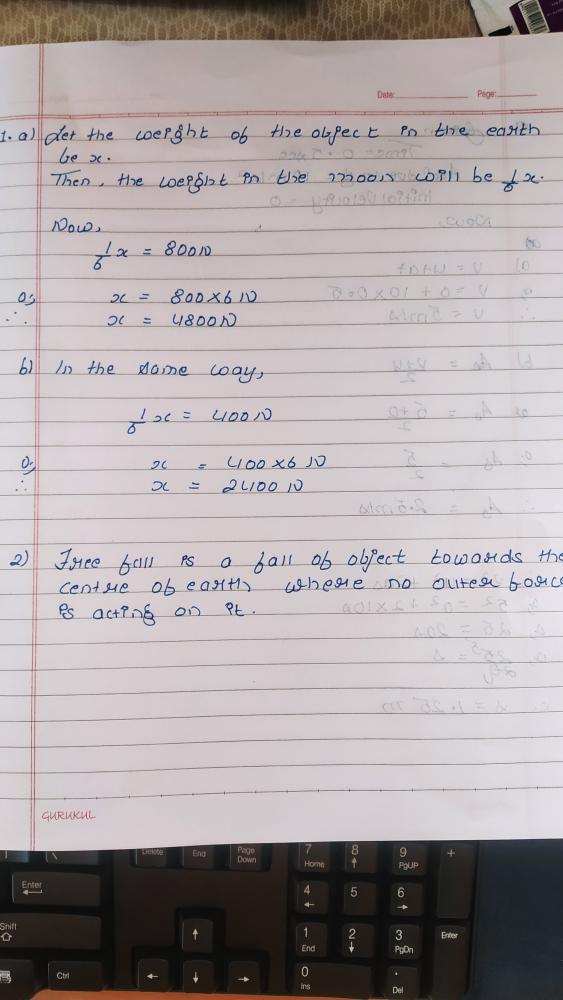 Date: Page:
1. a) Let the weight of the object in the earth
be x.
Then, the weight in the moon will be 1/6 x.
Now,
1/6 x = 800N
or, x = 800×6 N
∴ x = 4800N
b) In the same way,
1/6 x = 400N
or, x = 400×6 N
∴ x = 2400 N
2) Free fall is a fall of object towards the
centre of earth where no outer force
is acting on it.
GURUKUL
Delete End Page Down 7 Home 8 9 PgUP +
Enter 4 5 6
Shift 1 End 2 3 PgDn Enter
Ctrl 0 Ins . Del